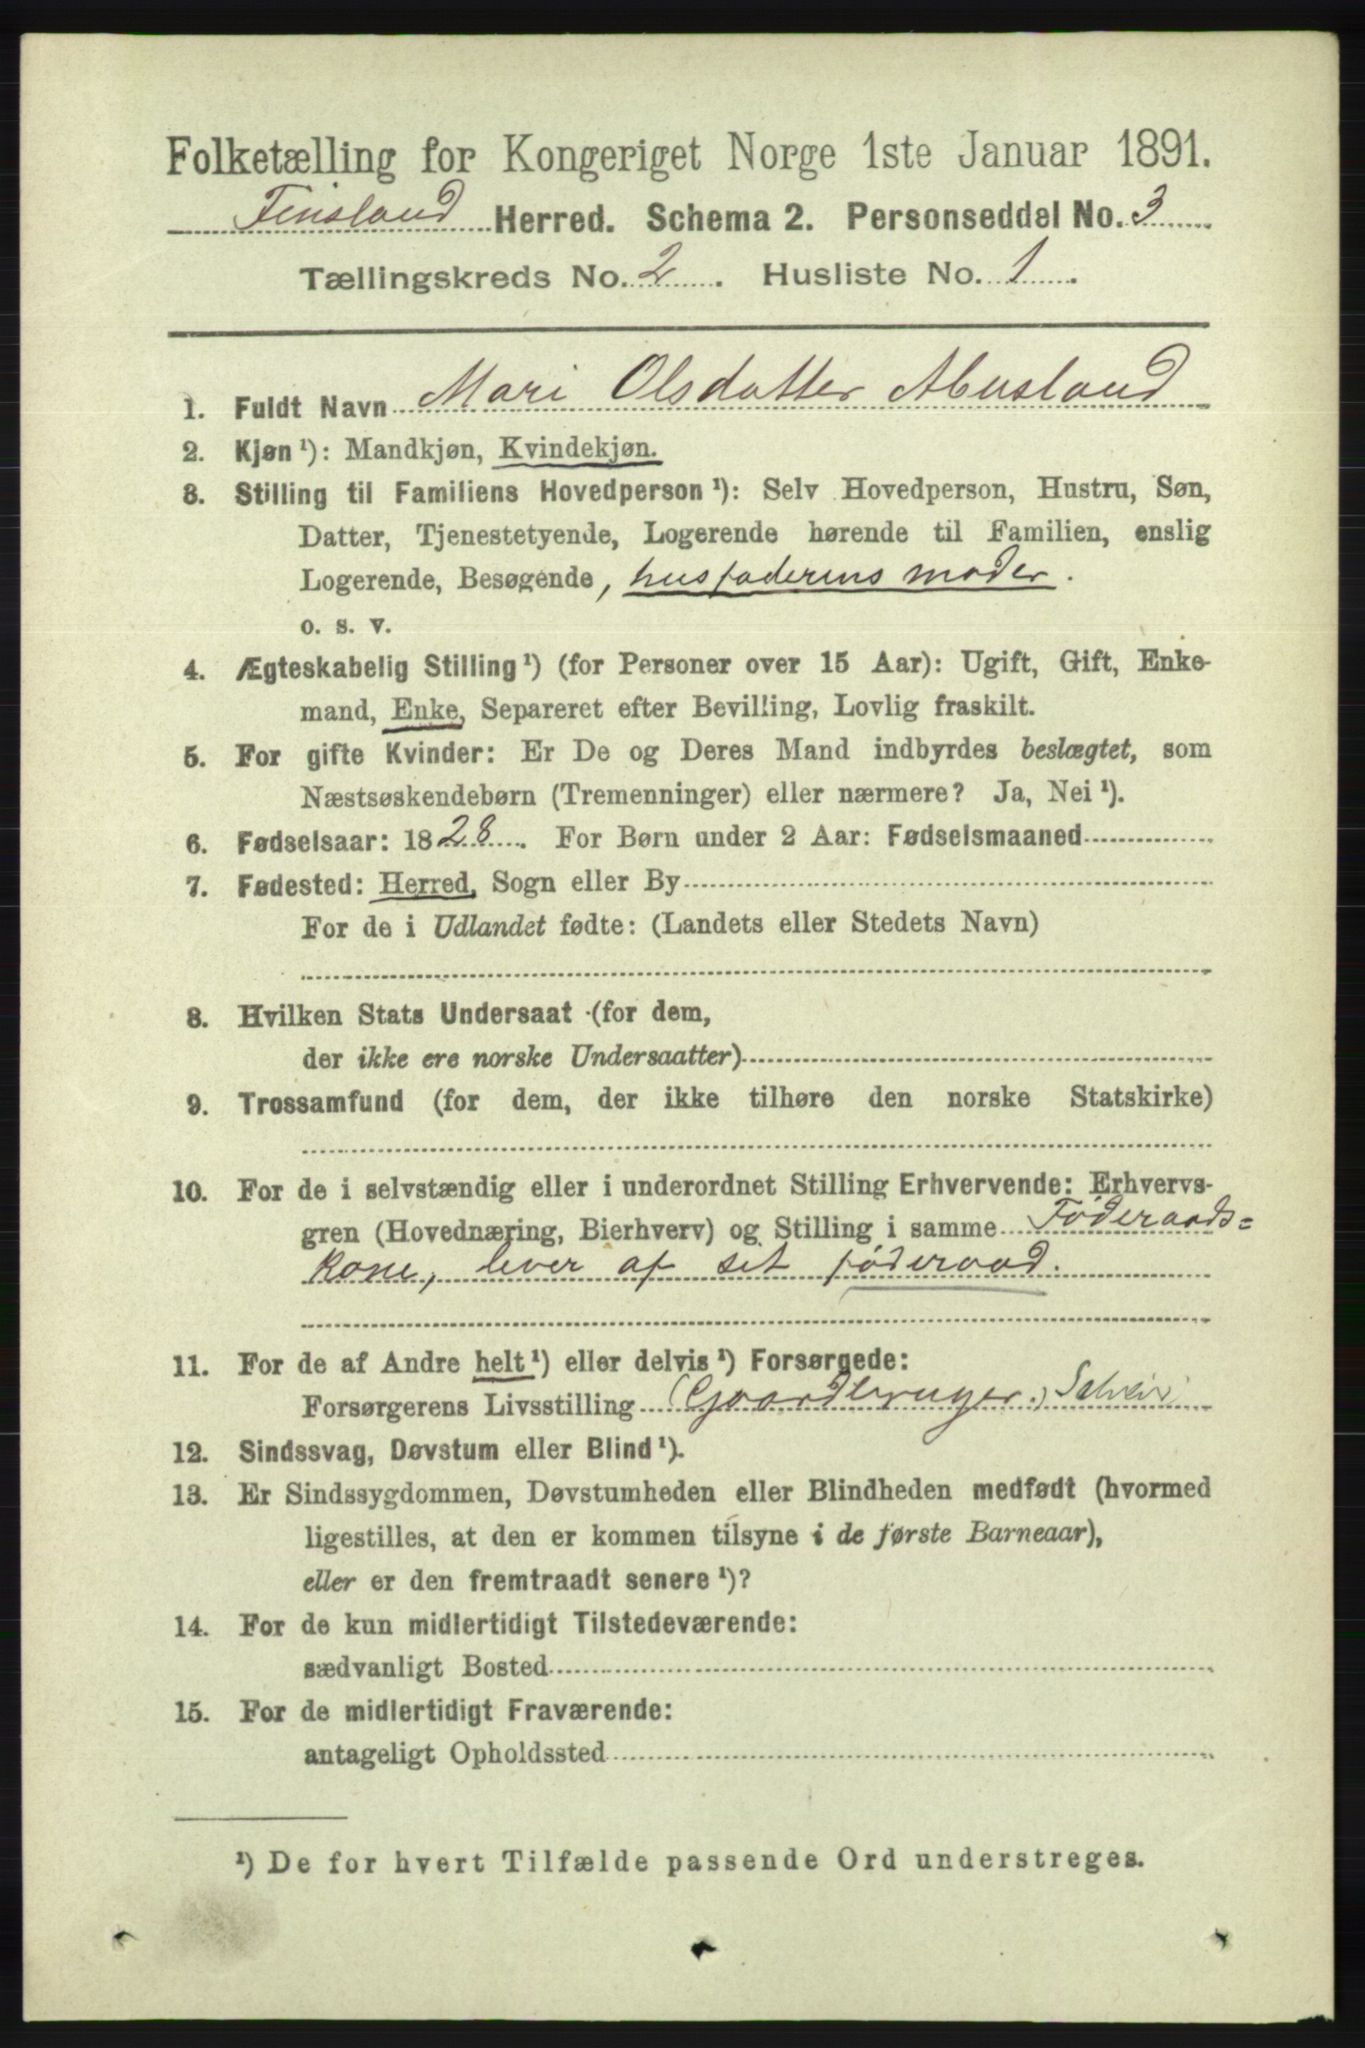 Folketælling for Kongeriget Norge 1ste Januar 1891.
Finsland Herred. Schema 2. Personseddel No. 3
Tællingskreds No. 2. Husliste No. 1.
1. Fuldt Navn Mari Olsdatter Abusland
2. Kjøn ¹): Mandkjøn, Kvindekjøn.
3. Stilling til Familiens Hovedperson ¹): Selv Hovedperson, Hustru, Søn,
Datter, Tjenestetyende, Logerende hørende til Familien, enslig
Logerende, Besøgende, husfaderens moder.
o. s. v.
4. Ægteskabelig Stilling ¹) (for Personer over 15 Aar): Ugift, Gift, Enke-
mand, Enke, Separeret efter Bevilling, Lovlig fraskilt.
5. For gifte Kvinder: Er De og Deres Mand indbyrdes beslægtet, som
Næstsøskendebørn (Tremenninger) eller nærmere? Ja, Nei ¹).
6. Fødselsaar: 1828. For Børn under 2 Aar: Fødselsmaaned
7. Fødested: Herred, Sogn eller By
For de i Udlandet fødte: (Landets eller Stedets Navn)
8. Hvilken Stats Undersaat (for dem,
der ikke ere norske Undersaatter)
9. Trossamfund (for dem, der ikke tilhøre den norske Statskirke)
10. For de i selvstændig eller i underordnet Stilling Erhvervende: Erhvervs-
gren (Hovednæring, Bierhverv) og Stilling i samme Føderaads=
kone, lever af sit føderaad.
11. For de af Andre helt ¹) eller delvis ¹) Forsørgede:
Forsørgerens Livsstilling (Gaardbruger.)
12. Sindssvag, Døvstum eller Blind ¹).
13. Er Sindssygdommen, Døvstumheden eller Blindheden medfødt (hvormed
ligestilles, at den er kommen tilsyne i de første Barneaar),
eller er den fremtraadt senere ¹)?
14. For de kun midlertidigt Tilstedeværende:
sædvanligt Bosted
15. For de midlertidigt Fraværende:
antageligt Opholdssted
¹) De for hvert Tilfælde passende Ord understreges.